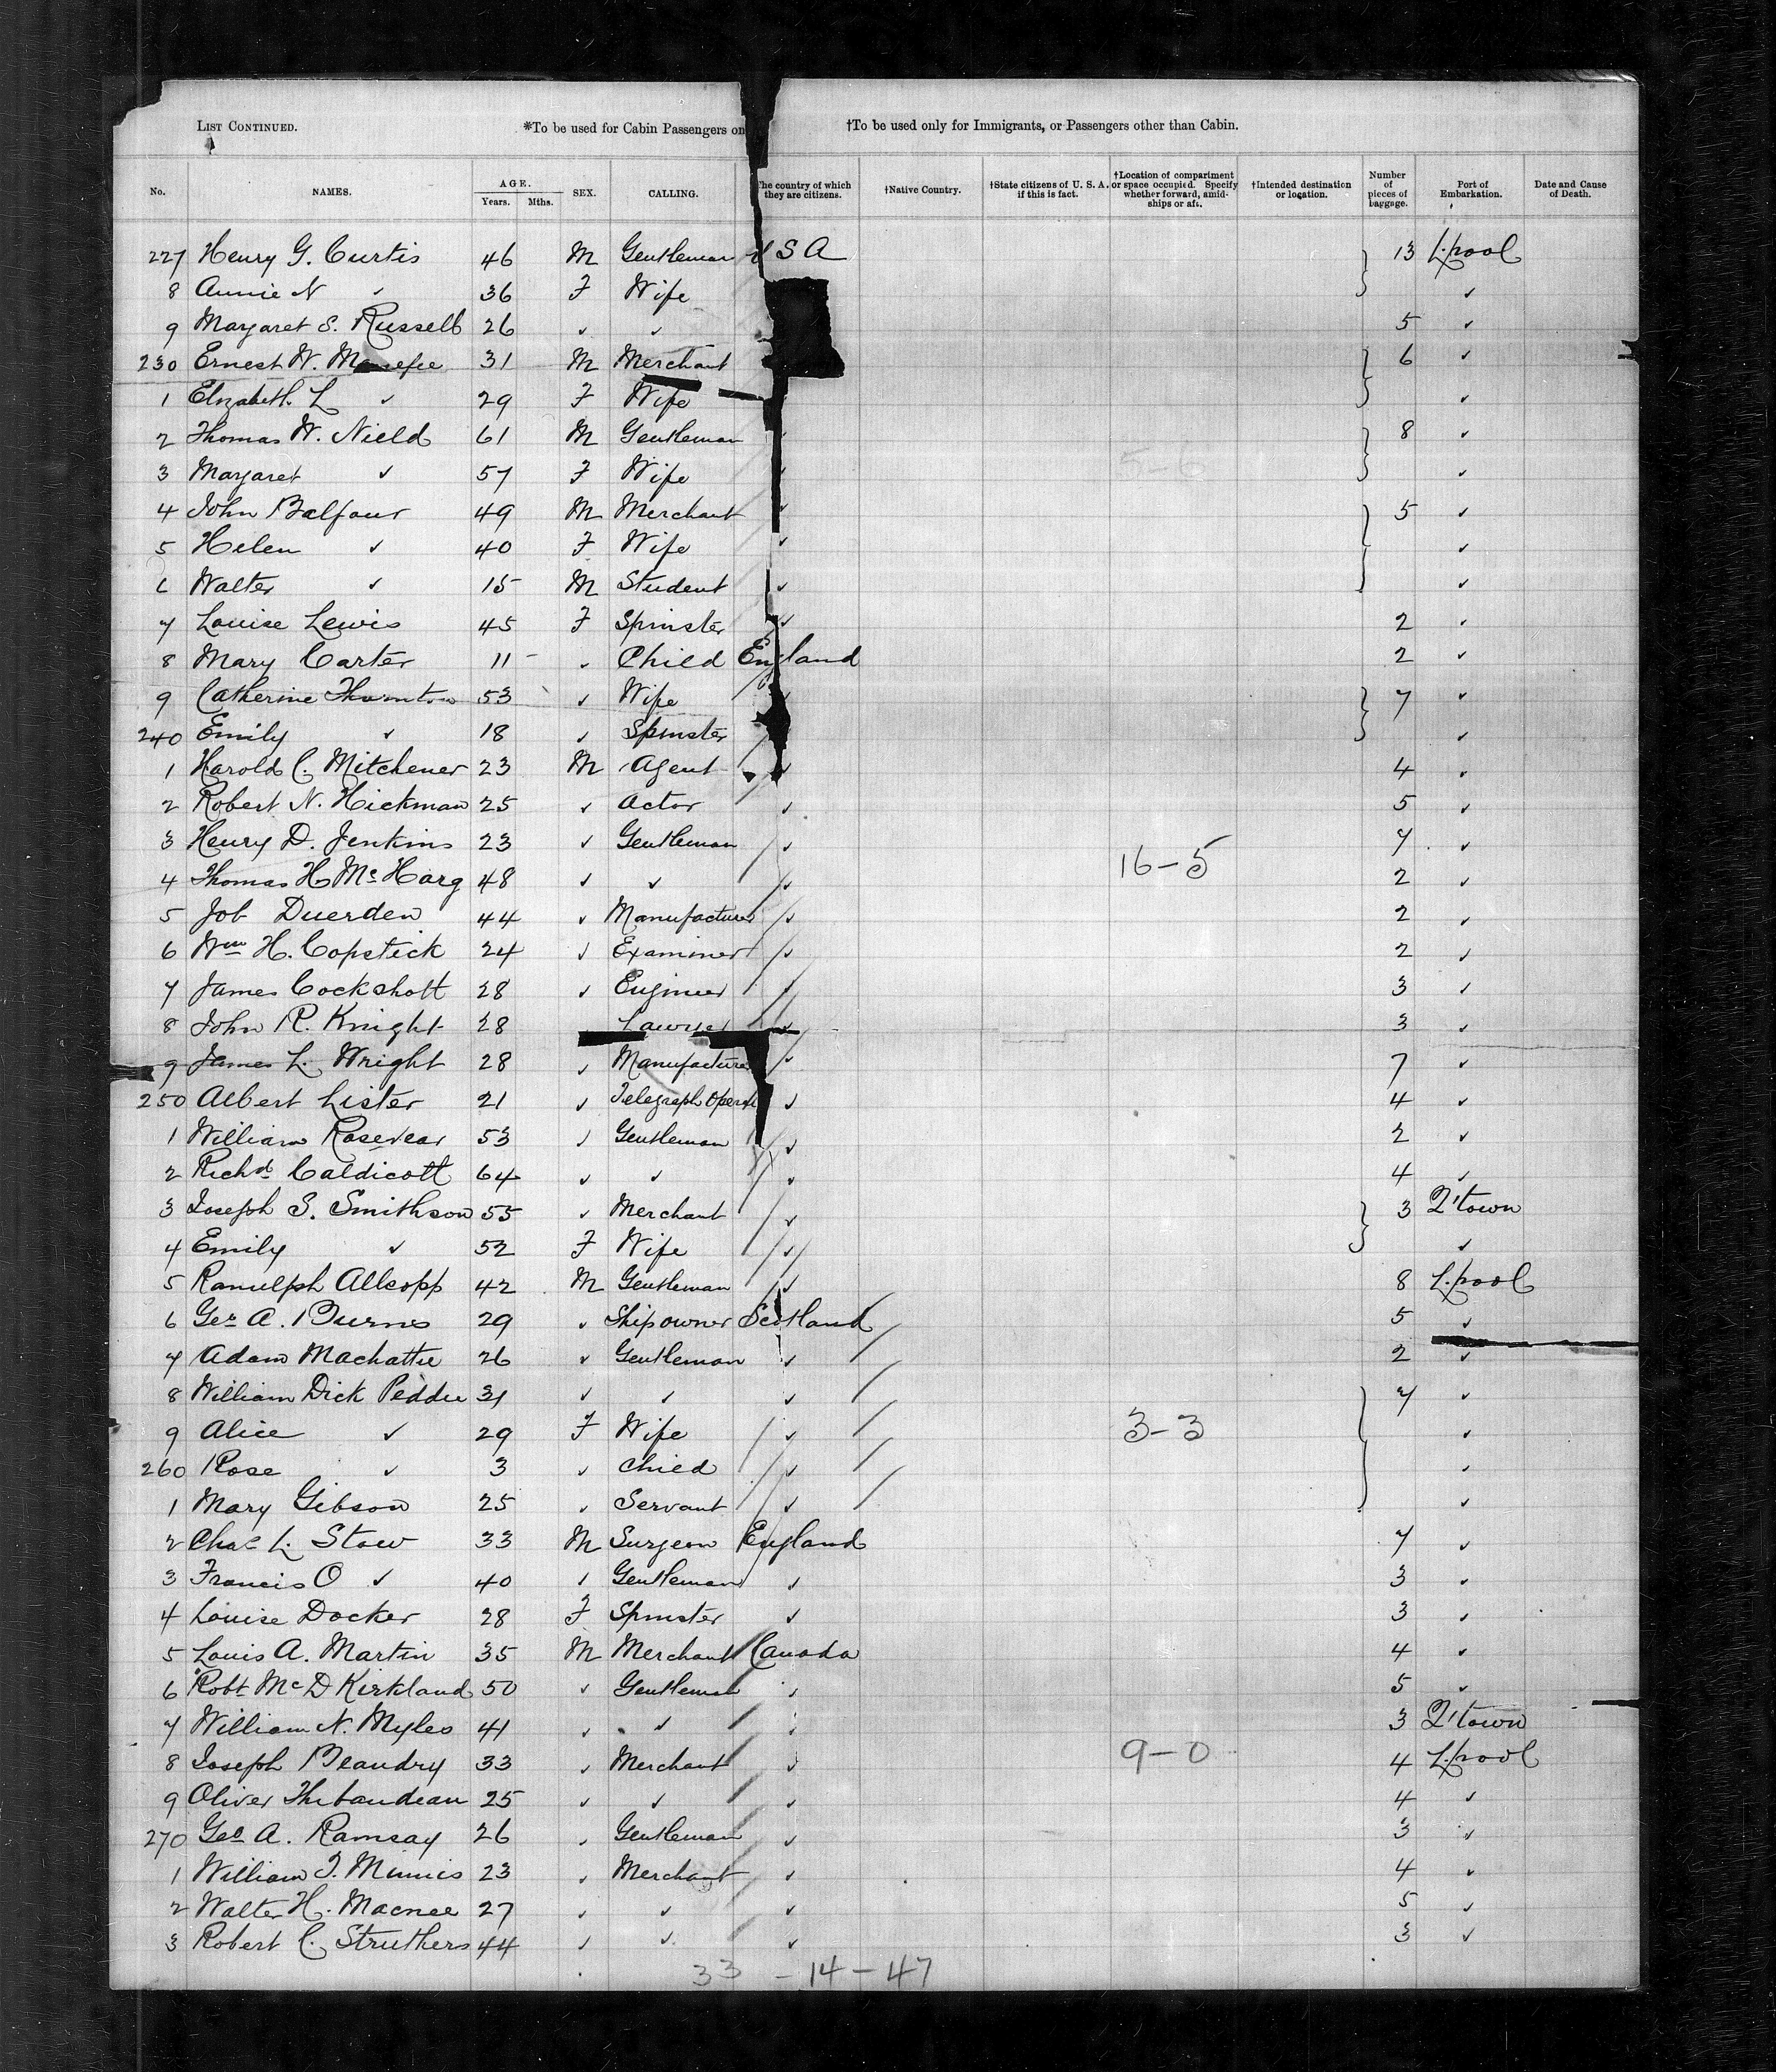 LIST CONTINUED. *To be used for Cabin Passengers on †To be used only for Immigrants, or Passengers other than Cabin.
No. NAMES. AGE. Years. Mths. SEX. CALLING. The country of which they are citizens. †Native Country. †State citizens of U. S. A. if this is fact. †Location of compartment or space occupied. Specify whether forward, amidships or aft. †Intended destination or location. Number of pieces of baggage. Port of Embarkation. Date and Cause of Death.
227 Henry G. Curtis 46 M Gentleman U S A 13 L.pool
8 Annie N ✓ 36 F Wife ✓
9 Margaret S. Russell 26 ✓ ✓ 5 ✓
230 Ernest W. 31 M Merchant 6 ✓
1 Elizabeth L ✓ 29 F Wife ✓
2 Thomas W. Nield 61 M Gentleman ✓ 8 ✓
3 Margaret ✓ 57 F Wife ✓ 5-6 ✓
4 John Balfour 49 M Merchant ✓ 5 ✓
5 Helen ✓ 40 F Wife ✓ ✓
6 Walter ✓ 15 M Student ✓ ✓
7 Louise Lewis 45 F Spinster ✓ 2 ✓
8 Mary Carter 11 - ✓ Child England 2 ✓
9 Catherine Thornton 53 ✓ Wife ✓ 7 ✓
240 Emily ✓ 18 ✓ Spinster ✓
1 Harold C. Mitchener 23 M Agent ✓ 4 ✓
2 Robert N. Hickman 25 ✓ Actor ✓ 5 ✓
3 Henry D. Jenkins 23 ✓ Gentleman ✓ 7 ✓
4 Thomas H McHarg 48 ✓ ✓ ✓ 16-5 2 ✓
5 Job Duerden 44 ✓ Manufacturer ✓ 2 ✓
6 Wm H. Copstick 24 ✓ Examiner ✓ 2 ✓
7 James Cockshott 28 ✓ Engineer ✓ 3 ✓
8 John R. Knight 28 Lawyer ✓ 3 ✓
9 James L. Wright 28 ✓ Manufacturer ✓ 7 ✓
250 Albert Lister 21 ✓ Telegraph Operat ✓ 4 ✓
1 William Rosevear 53 ✓ Gentleman ✓ 2 ✓
2 Richd Caldicott 64 ✓ ✓ ✓ 4 ✓
3 Joseph S. Smithson 55 ✓ Merchant ✓ 3 Q'town
4 Emily ✓ 52 F Wife ✓ ✓
5 Ranulph Allsopp 42 M Gentleman ✓ 8 L.pool
6 Geo A. Burns 29 ✓ Shipowner Scotland 5 ✓
7 Adam Machattie 26 ✓ Gentleman ✓ 2 ✓
8 William Dick Peddie 31 ✓ ✓ ✓ 7 ✓
9 Alice ✓ 29 F Wife ✓ 3-3 ✓
260 Rose ✓ 3 ✓ Child ✓ ✓
1 Mary Gibson 25 ✓ Servant ✓ ✓
2 Chas L. Stow 33 M Surgeon England 7 ✓
3 Francis O ✓ 40 ✓ Gentleman ✓ 3 ✓
4 Louise Docker 28 F Spinster ✓ 3 ✓
5 Louis A. Martin 35 M Merchant Canada 4 ✓
6 Robt McD Kirkland 50 ✓ Gentleman ✓ 5 ✓
7 William N. Myles 41 ✓ ✓ ✓ 3 Q'town
8 Joseph Beaudry 33 ✓ Merchant ✓ 9-0 4 L.pool
9 Oliver Thibaudeau 25 ✓ ✓ ✓ 4 ✓
270 Geo A. Ramsay 26 ✓ Gentleman ✓ 3 ✓
1 William J. Minnis 23 ✓ Merchant ✓ 4 ✓
2 Walter H. Macnee 27 ✓ ✓ ✓ 5 ✓
3 Robert C. Struthers 44 ✓ ✓ ✓ 3 ✓
33 - 14 - 47